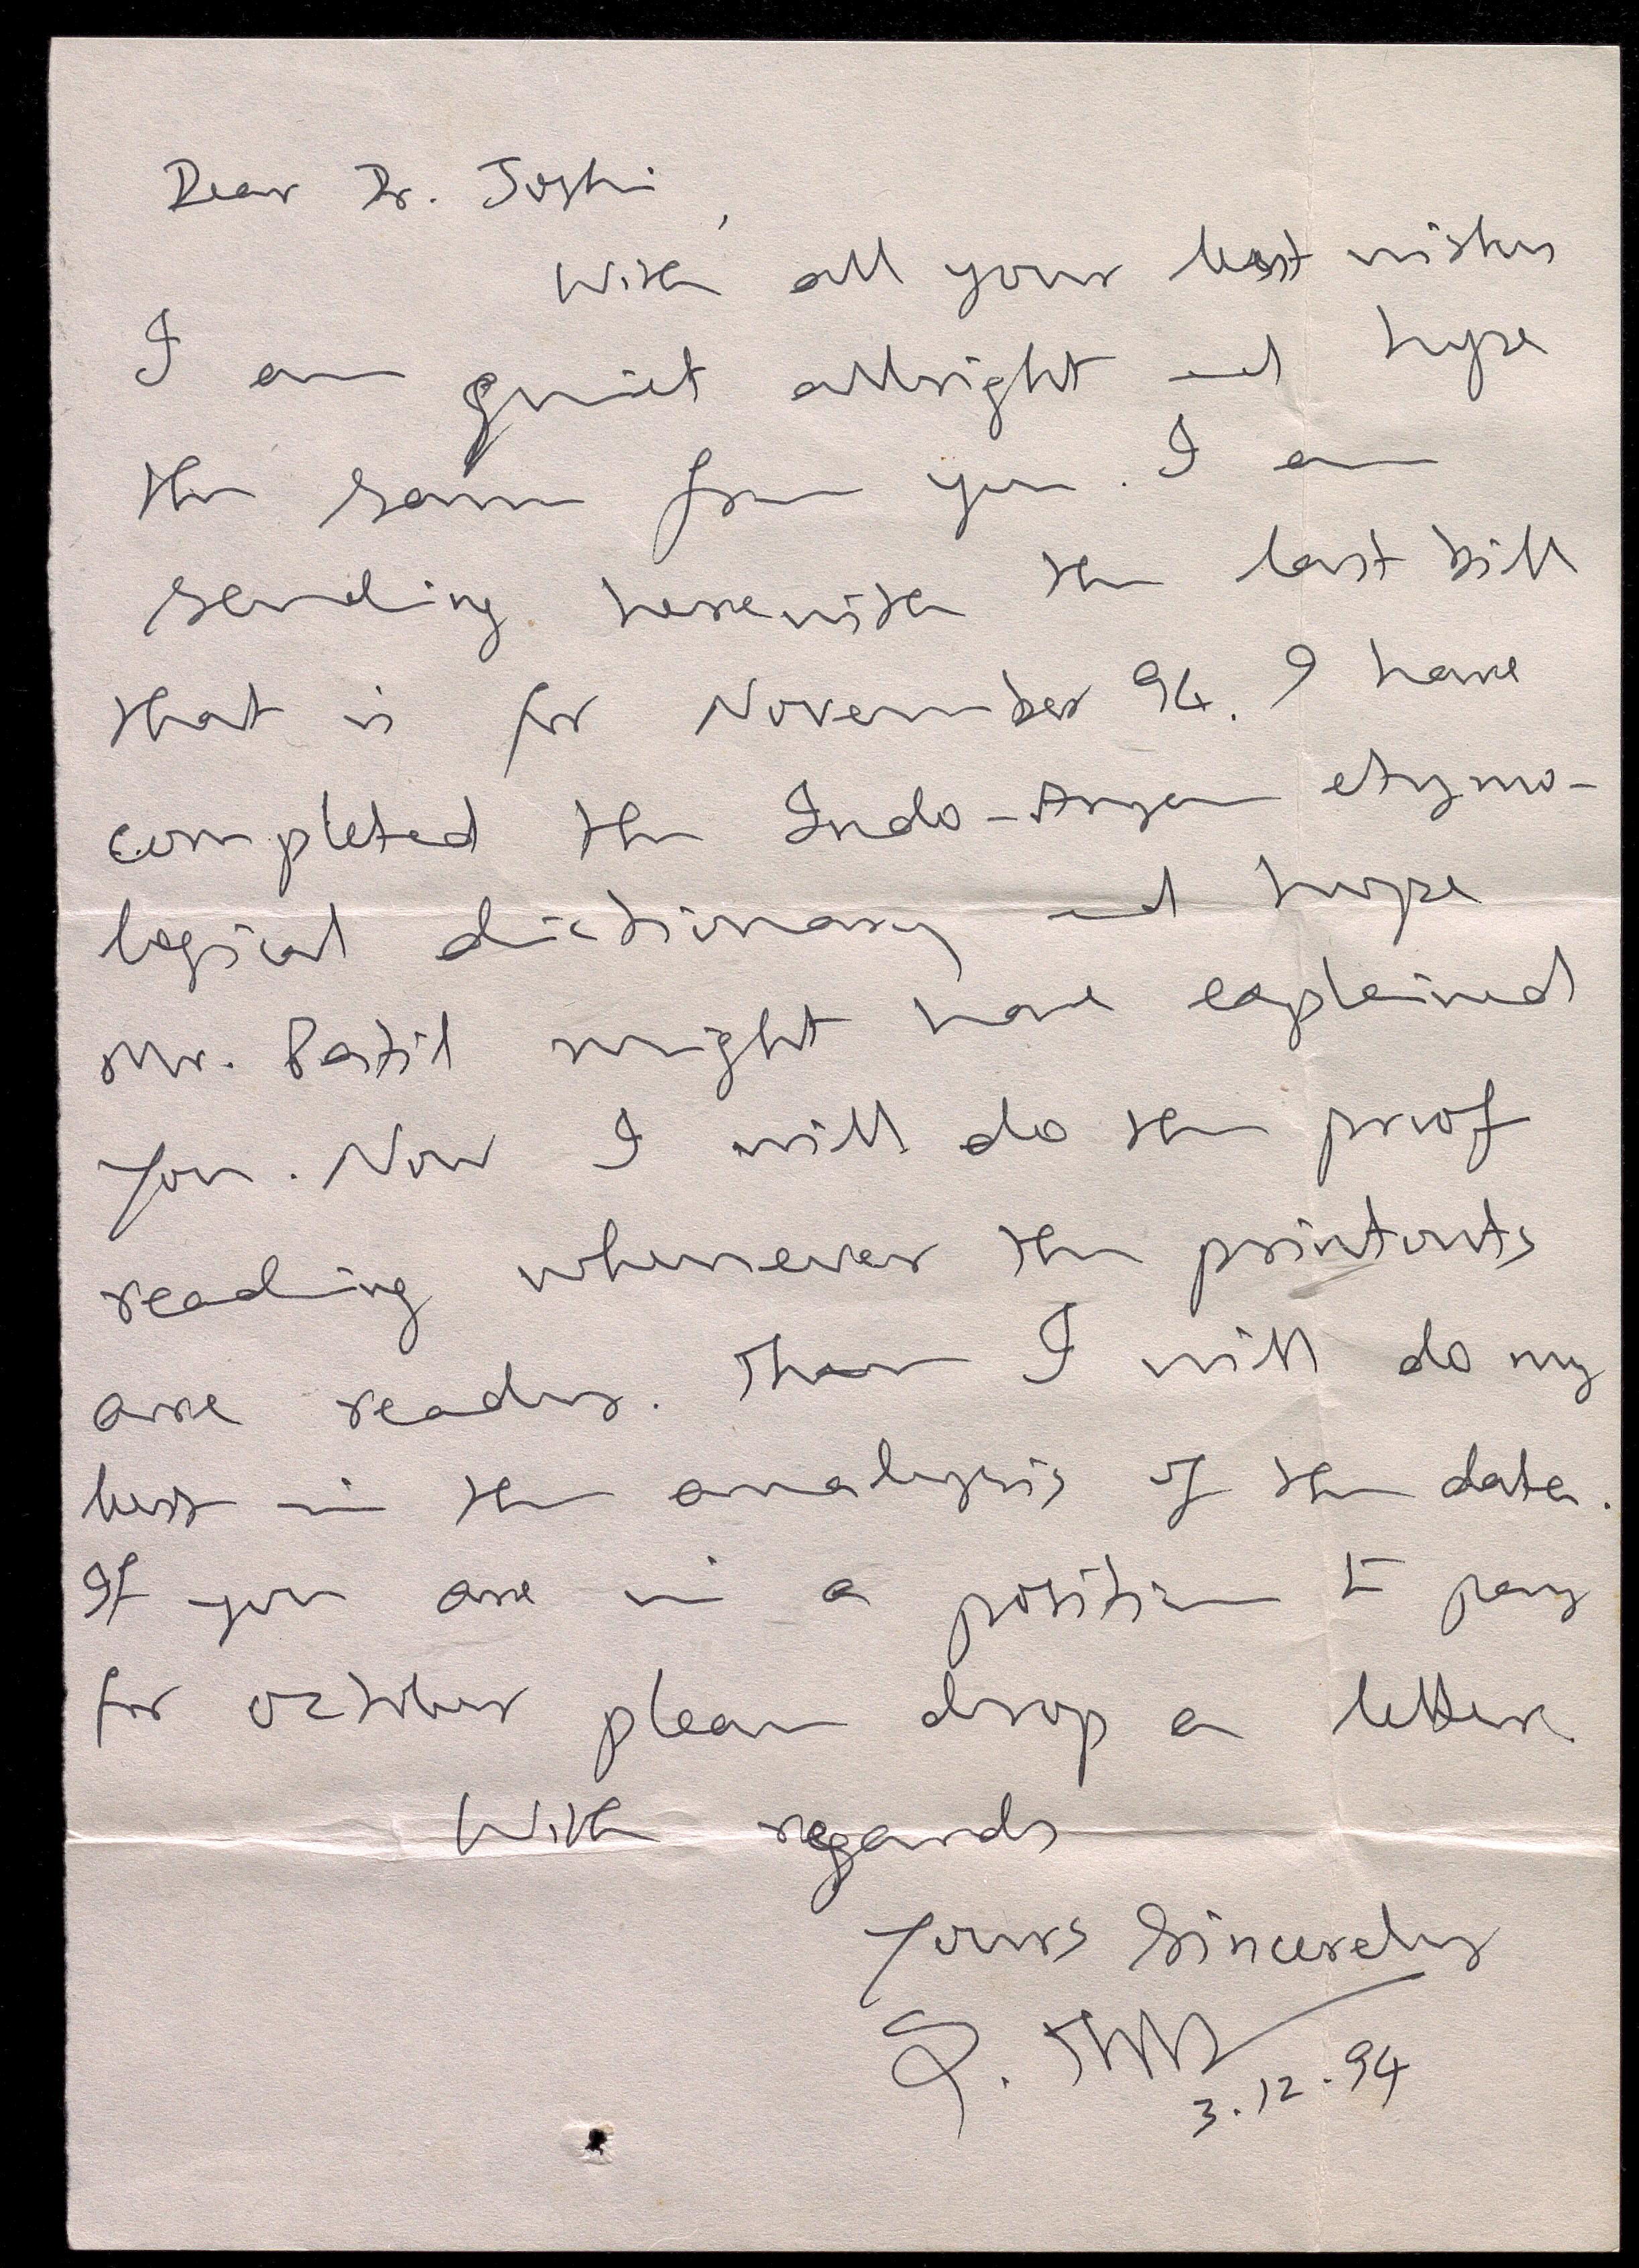 Dear Dr. Joshi,
With all your best wishes
I am quiet allright and hope
the same from you. I am
sending herewith the last bill
that is for November 94. I have
completed the Indo-Aryan etymo-
logical dictionary and hope
Mr. Patil might have explained
you. Now I will do the proof
reading whenever the printouts
are ready. Then I will do my
best in the analysis of the data.
If you are in a position to pay
for october please drop a letter.
With regards
Yours Sincerely
3.12.94